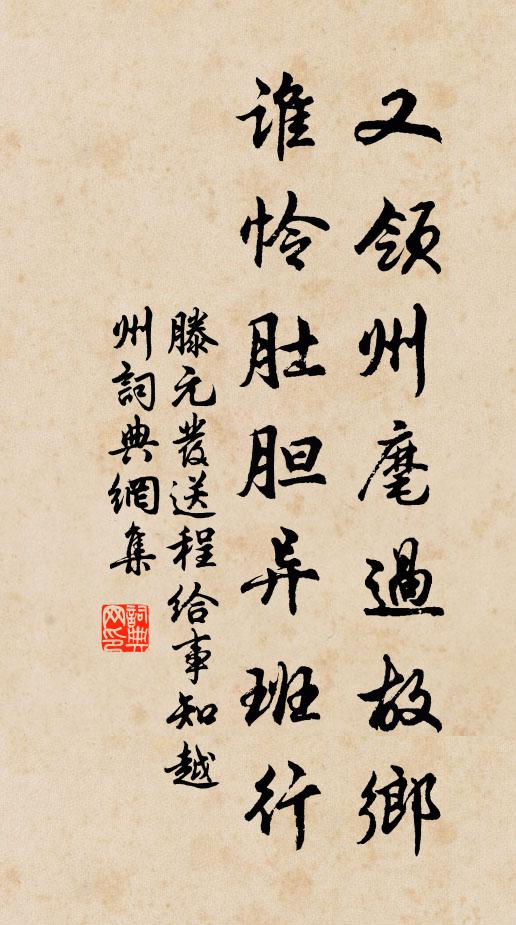 又领州麾過故鄉
谁怜肚胆异班行
滕元發送程给事知越
州詞典網集
詞典网印